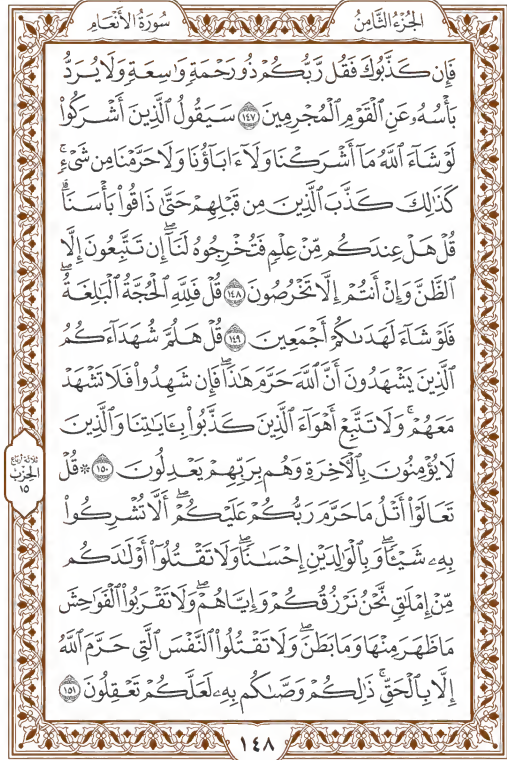 الجُزْءُ الثَّامِنُ
سُورَةُ الأَنْعَامِ
فَإِن كَذَّبُوكَ فَقُل رَّبُّكُمْ ذُو رَحْمَةٍ وَاسِعَةٍ وَلَا يُرَدُّ
بَأْسُهُۥ عَنِ ٱلْقَوْمِ ٱلْمُجْرِمِينَ ١٤٧ سَيَقُولُ ٱلَّذِينَ أَشْرَكُوا۟
لَوْ شَآءَ ٱللَّهُ مَآ أَشْرَكْنَا وَلَآ ءَابَآؤُنَا وَلَا حَرَّمْنَا مِن شَىْءٍ ۚ
كَذَٰلِكَ كَذَّبَ ٱلَّذِينَ مِن قَبْلِهِمْ حَتَّىٰ ذَاقُوا۟ بَأْسَنَا ۗ
قُلْ هَلْ عِندَكُم مِّنْ عِلْمٍ فَتُخْرِجُوهُ لَنَآ ۖ إِن تَتَّبِعُونَ إِلَّا
ٱلظَّنَّ وَإِنْ أَنتُمْ إِلَّا تَخْرُصُونَ ١٤٨ قُلْ فَلِلَّهِ ٱلْحُجَّةُ ٱلْبَٰلِغَةُ ۖ
فَلَوْ شَآءَ لَهَدَىٰكُمْ أَجْمَعِينَ ١٤٩ قُلْ هَلُمَّ شُهَدَآءَكُمُ
ٱلَّذِينَ يَشْهَدُونَ أَنَّ ٱللَّهَ حَرَّمَ هَٰذَا ۖ فَإِن شَهِدُوا۟ فَلَا تَشْهَدْ
مَعَهُمْ ۚ وَلَا تَتَّبِعْ أَهْوَآءَ ٱلَّذِينَ كَذَّبُوا۟ بِـَٔايَٰتِنَا وَٱلَّذِينَ
لَا يُؤْمِنُونَ بِٱلْـَٔاخِرَةِ وَهُم بِرَبِّهِمْ يَعْدِلُونَ ١٥٠ ۞ قُلْ
تَعَالَوْا۟ أَتْلُ مَا حَرَّمَ رَبُّكُمْ عَلَيْكُمْ ۖ أَلَّا تُشْرِكُوا۟
بِهِۦ شَيْـًٔا ۖ وَبِٱلْوَٰلِدَيْنِ إِحْسَٰنًا ۖ وَلَا تَقْتُلُوٓا۟ أَوْلَٰدَكُم
مِّنْ إِمْلَٰقٍ ۖ نَّحْنُ نَرْزُقُكُمْ وَإِيَّاهُمْ ۖ وَلَا تَقْرَبُوا۟ ٱلْفَوَٰحِشَ
مَا ظَهَرَ مِنْهَا وَمَا بَطَنَ ۖ وَلَا تَقْتُلُوا۟ ٱلنَّفْسَ ٱلَّتِى حَرَّمَ ٱللَّهُ
إِلَّا بِٱلْحَقِّ ۚ ذَٰلِكُمْ وَصَّىٰكُم بِهِۦ لَعَلَّكُمْ تَعْقِلُونَ ١٥١
ثلاثة أرباع
الحزب
١٥
١٤٨